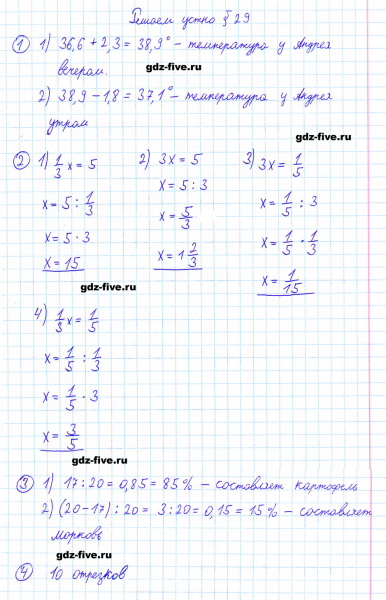 Решаем устно § 29
① 1) 36,6 + 2,3 = 38,9° – температура у Андрея
вечером.
gdz-five.ru
2) 38,9 – 1,8 = 37,1° – температура у Андрея
утром
gdz-five.ru
② 1) 1/3 x = 5
x = 5 : 1/3
x = 5 · 3
x = 15
2) 3x = 5
x = 5 : 3
x = 5/3
x = 1 2/3
3) 3x = 1/5
x = 1/5 : 3
x = 1/5 · 1/3
x = 1/15
gdz-five.ru
4) 1/3 x = 1/5
x = 1/5 : 1/3
x = 1/5 · 3
x = 3/5
gdz-five.ru
③ 1) 17 : 20 = 0,85 = 85% – составляет картофель
2) (20 – 17) : 20 = 3 : 20 = 0,15 = 15% – составляет
морковь
gdz-five.ru
④ 10 отрезков